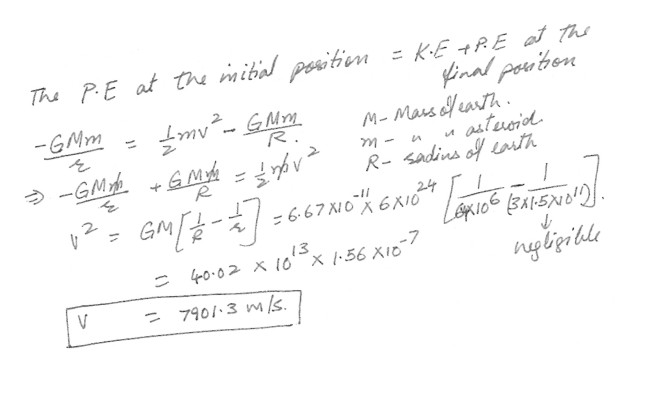 The P.E at the initial position = K.E + P.E at the
final position
-GMm/r = 1/2 mv² - GMm/R.
M - Mass of earth.
m - " " asteroid.
R - radius of earth
⇒ -GMm/r + GMm/R = 1/2 mv²
v² = GM[1/R - 1/r] = 6.67X10⁻¹¹ X 6X10²⁴ [1/(6.4X10⁶) - 1/(3X1.5X10¹¹)].
↓
negligible
= 40.02 X 10¹³ X 1.56 X10⁻⁷
V = 7901.3 m/s.